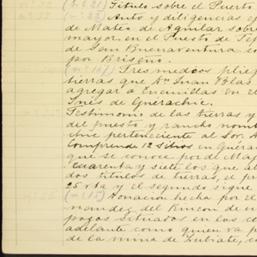 (n° 21) Titulo sobre el Puerto
Auto y diligencias
de Mateo de Aguilar sobre
mayor, en el Puesto de
de San Buenaventura
por Briseño.
Tres medios plieg
tierras que Dn Juan Blas
agregar a Encinillas en el
Inés de Guerachic.
Testimonio de las tierras y
del puesto y rancho nom
chic perteneciente al Sor.
Comprende 12 sitios en Guera
que se conoce por de Maj
cuarenta y siete los que al
dos titulos de tierras, el pr
25 vta y el segundo sigue
Donacion hecha por el
nandez del Rincon de
pagos situados en las
adelante como quien va p
de la mina de Zubiate,